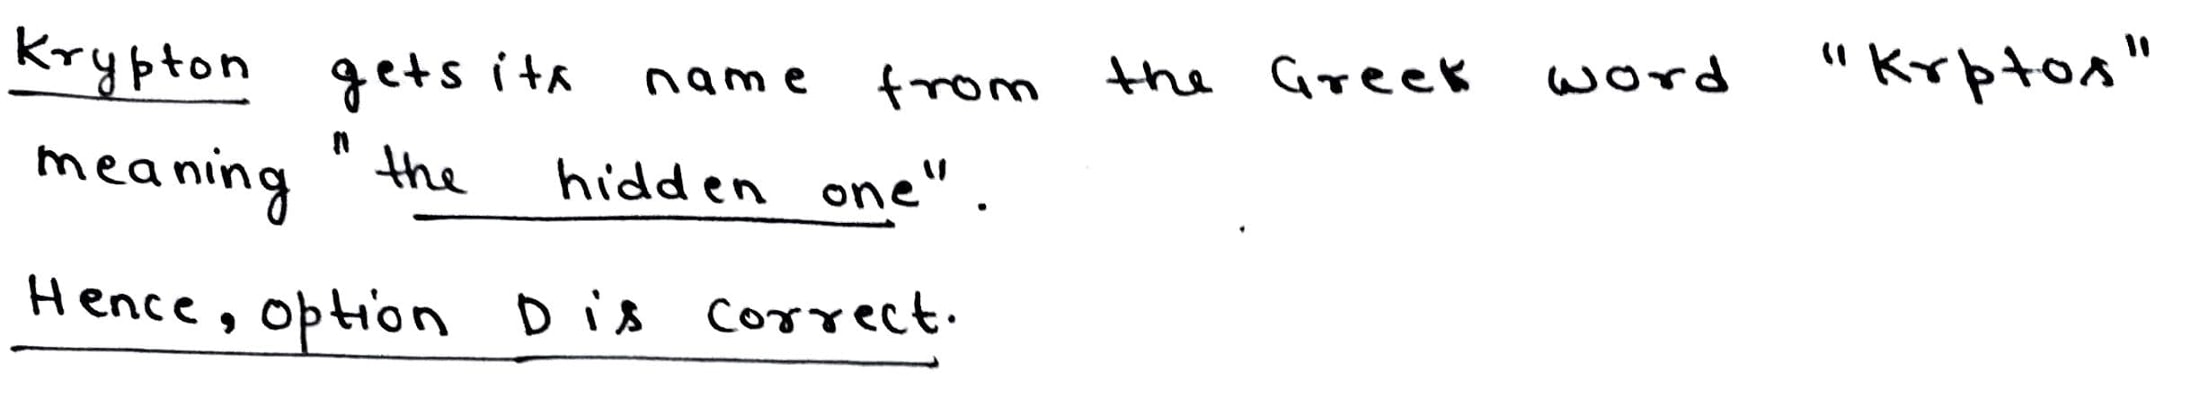 Krypton gets its name from the Greek word "Krptos"
meaning "the hidden one".
Hence, option D is correct.